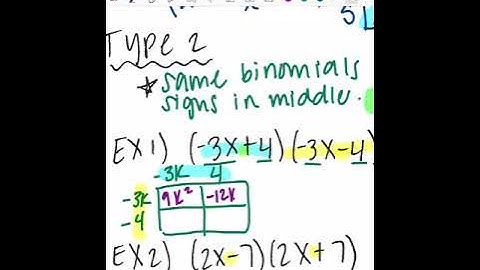 TYPE 2
* same binomials
signs in middle.
EX1) (-3x+4)(-3x-4)
-3x 4
-3x 9x² -12x
-4
EX2) (2x-7)(2x+7)